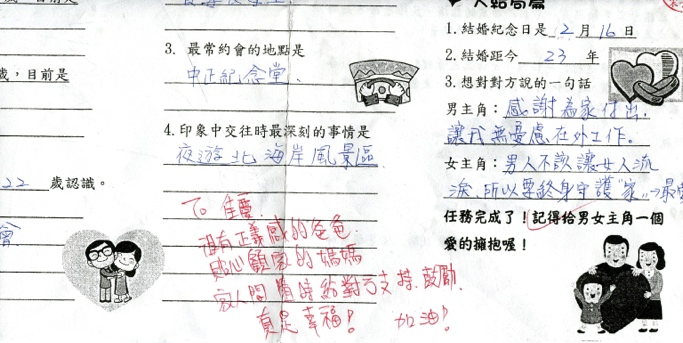 歲，目前是
22 歲認識。
會
3. 最常約會的地點是
中正紀念堂.
4. 印象中交往時最深刻的事情是
夜遊北海岸風景區
To 佳
很有正義感的爸爸
貼心顧家的媽媽
家人間 隨時給對方支持.鼓勵.
真是幸福! 加油!
1. 結婚紀念日是 2 月 16 日
2. 結婚距今 23 年
3. 想對對方說的一句話
男主角：感謝為家付出,
讓我無憂慮在外工作。
女主角：男人不該讓女人流
淚,所以要終身守護"家"→最
任務完成了！記得給男女主角一個
愛的擁抱喔！